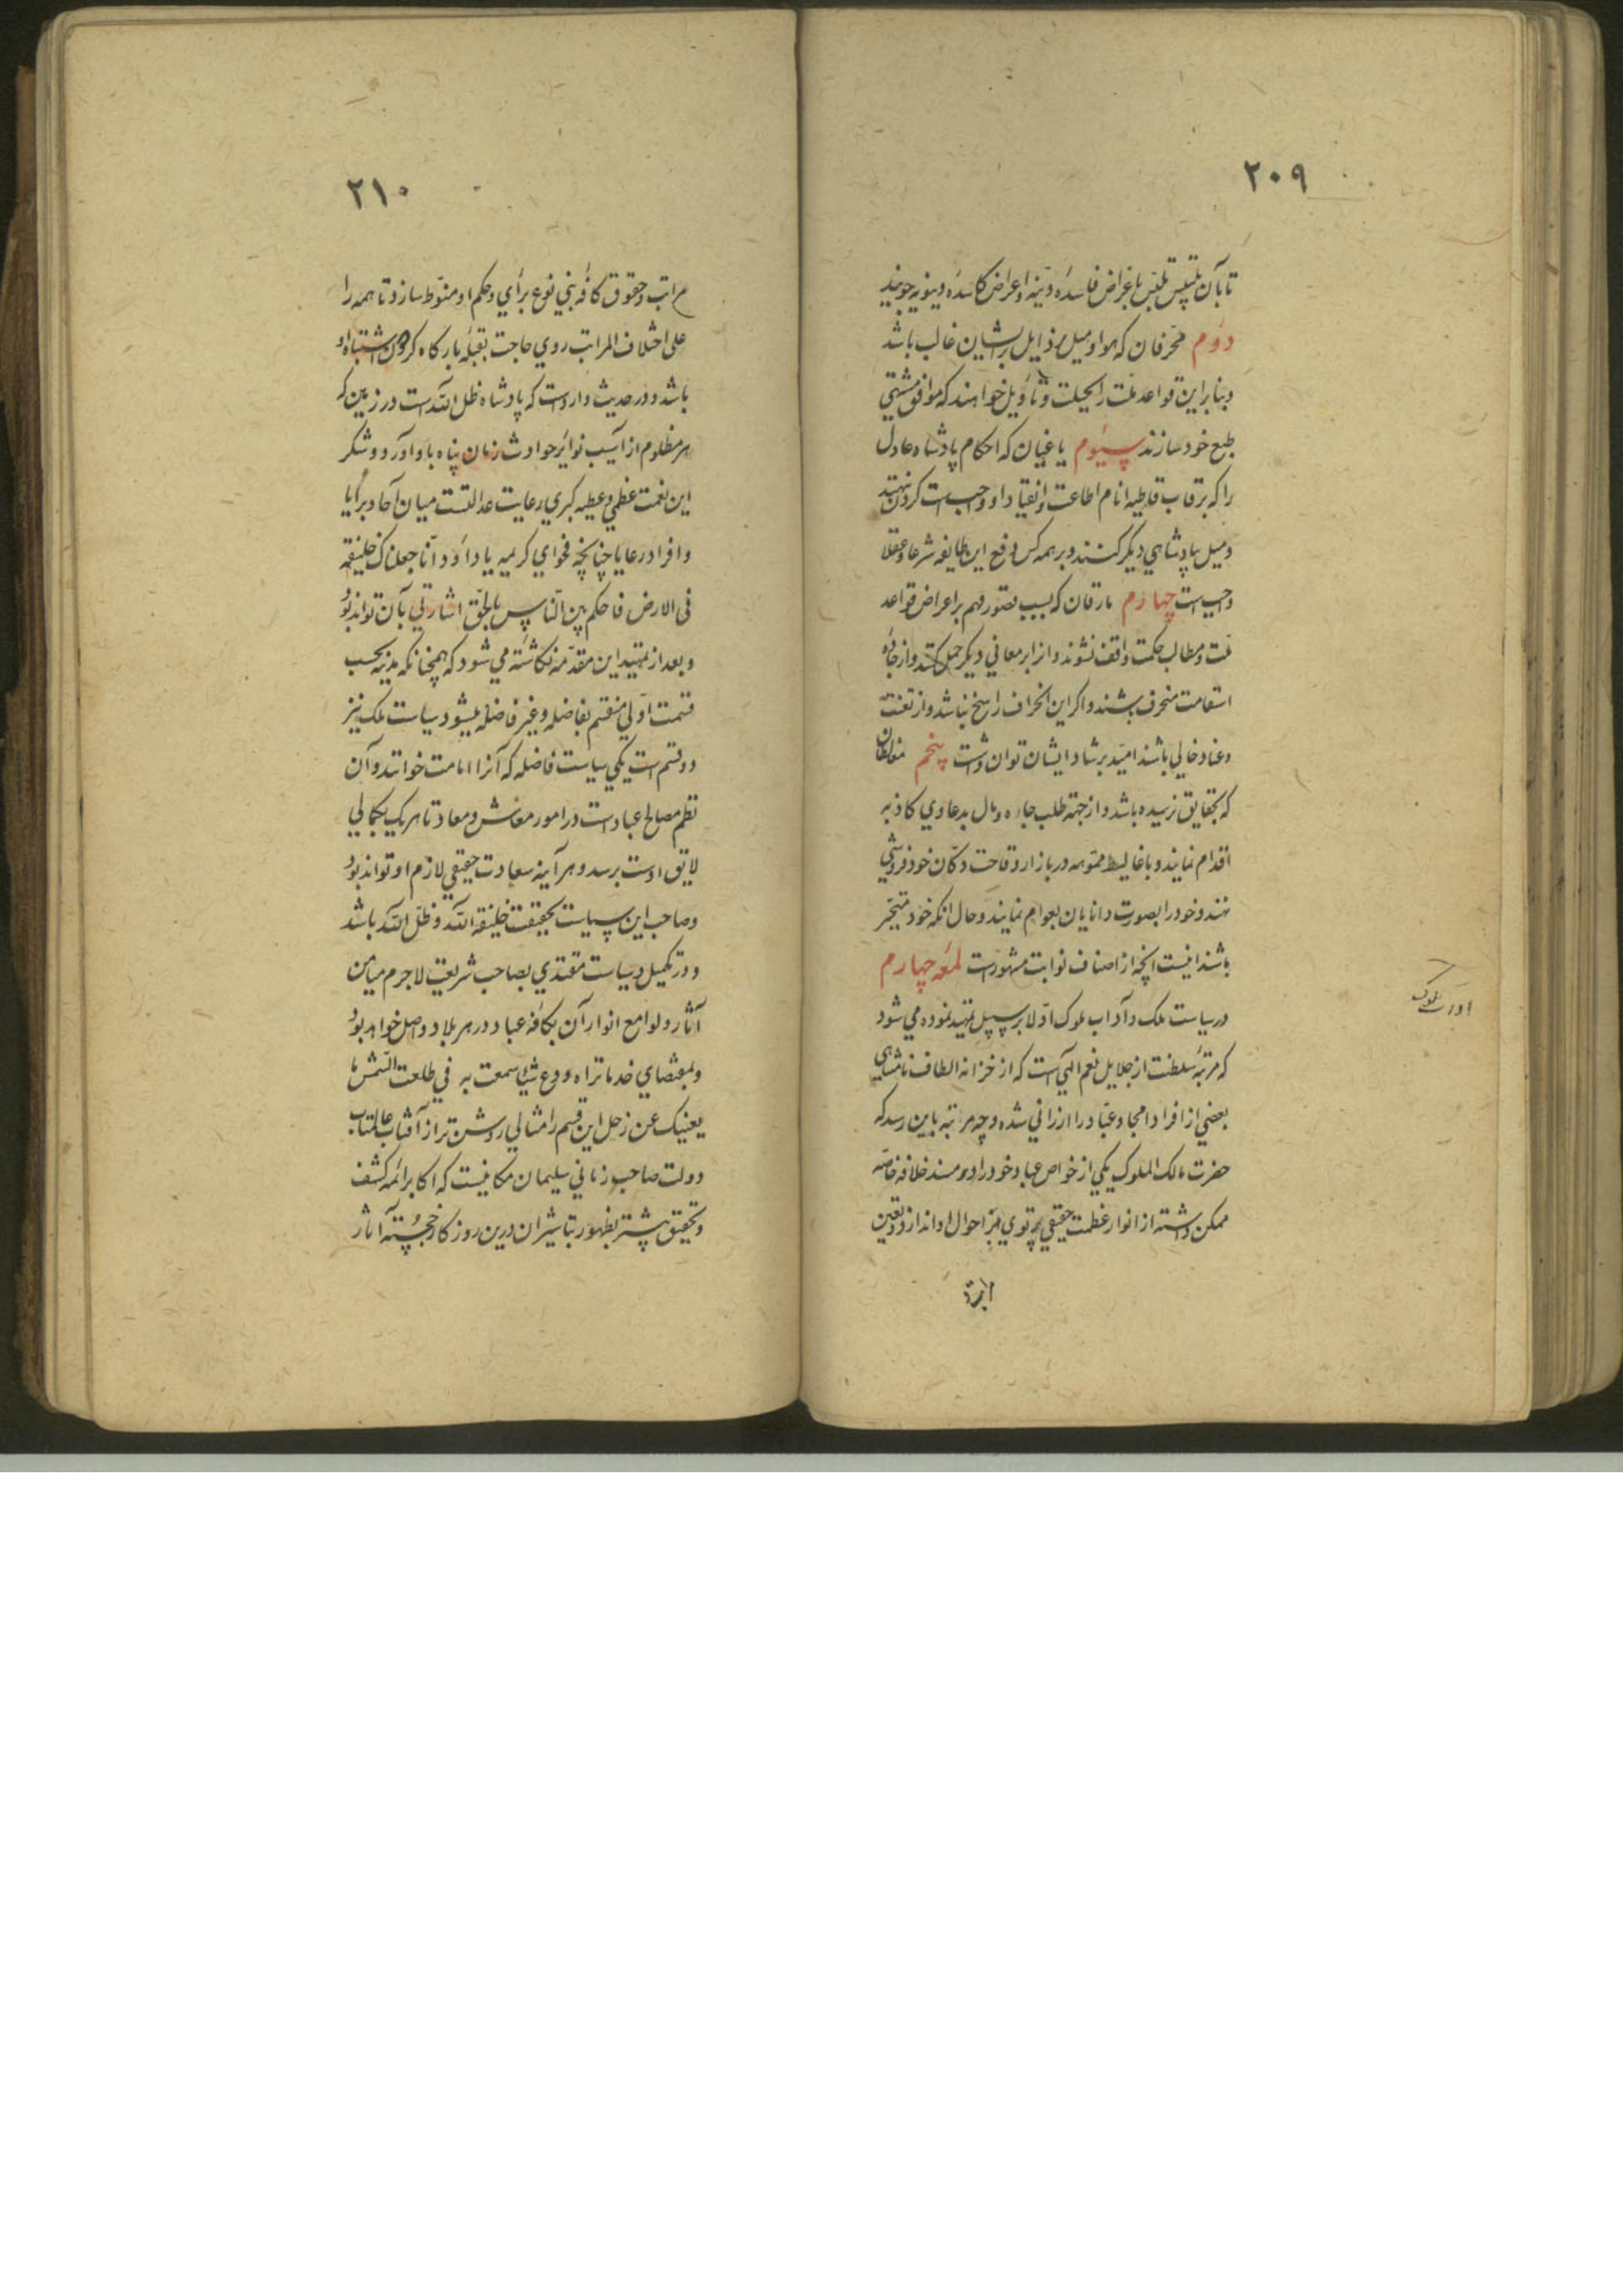 ٢٠٩
تا بآن تلبیس تلبّس باغراض فاسده دنیّه و اعراض کاسده دنیویه جویند
دوم محّرفان که هوا و میل رذایل بر ایشان غالب باشد
و بنابراین قواعد ملت را بحیلت و تأویل خواهند که موافق مشتهی
طبع خود سازند سیّوم یاغیان که احکام پادشاه عادل
را که برقاب قاطبه انام اطاعت و انقیاد او واجبست کردن ننهند
و میل بپادشاهی دیکر کنند و بر همه کس دفع این طایفه شرعا و عقلا
واجبست چهارم مارقان که بسبب قصور فهم بر اعراض قواعد
ملت و مطالب حکمت واقف نشوند و انرا بر معانی دیکر حمل کنند و از جاده
استقامت منحرف باشند و اکر این انحراف راسخ نباشد و از تعنت
و عناد خالی باشند امید برشاد ایشان توان داشت پنجم مغالطان
که بحقایق نرسیده باشد و از جهة طلب جاه و مال بدعاوی کاذبه
اقدام نمایند و باغالیط مموّهه در بازار وقاحت دکّان خود فروشی
نهند و خود را بصورت دانایان بعوام نمایند و حال انکه خود متحیّر
باشند اینست انچه از اصناف نوابت مشهورست لمعه چهارم
در سیاست ملک و آداب ملوک اوّلا بر سبیل تمهید نموده می شود
که مرتبهٔ سلطنت از جلایل نعم الهی است که از خزانه الطاف نامتناهی
بعضی از افراد امجاد عبّاد را ارزانی شده و چه مرتبه باین رسد که
حضرت مالک الملوک یکی از خواص عباد خود را در مسند خلافه خاصّه
ممکن داشته از انوار عظمت حقیقی پرتوی بر احوال او اندازد و تعین
مراتب
ملوک
٢١٠
مراتب و حقوق کافّه بنی نوع برای و حکم او منوّط سازد تا همه را
علی اختلاف المراتب روی حاجت بقبلهٔ بارکاه کردون اشتباه او
باشد و در حدیث واردست که پادشاه ظل اللّه است در زمین که
هر مظلوم از آسیب نوایر حوادث زمان پناه باو آورد و شکر
این نعمت عظمی و عطیه کبری رعایت عدالتست میان آحاد برایا
و افراد رعایا چنانچه فحوای کریمه یا داود انّا جعلناک خلیفة
فی الارض فاحکم بین النّاس بالحّق اشارتی بآن تواند بُود
و بعد از تمهید این مقدّمه نکاشته می شود که همچنانکه مدنیه بحسب
قسمت اوّلی منقسم بفاضله و غیر فاضله میشود سیاست ملک نیز
دو قسم است یکی سیاست فاضله که آنرا امامت خوانند و آن
نظم مصالح عبادست در امور معاش و معاد تا هر یک بکمالی
لایق اوست برسد و هر آینه سعادت حقیقی لازم او تواند بُود
و صاحب این سیاست بحقیقت خلیفة اللّه و ظلّ اللّه باشد
و در تکمیل سیاست مقتدی بصاحب شریعت لاجرم میامن
آثار و لوامع انوار آن بکافّه عباد در هر بلاد واصل خواهد بود
و بمقتضای خذ ما تراه و دع شیئا سمعت به فی طلعت الشّمس ما
یغنیک عن زحل این قسم را مثالی روشن تر از آفتاب عالمتاب
دولت صاحب زمانی سلیمان مکانیست که اکابر ائمه کشف
و تحقیق پیشتر بظهور تباشیر ان درین روزکار خجسته آثار